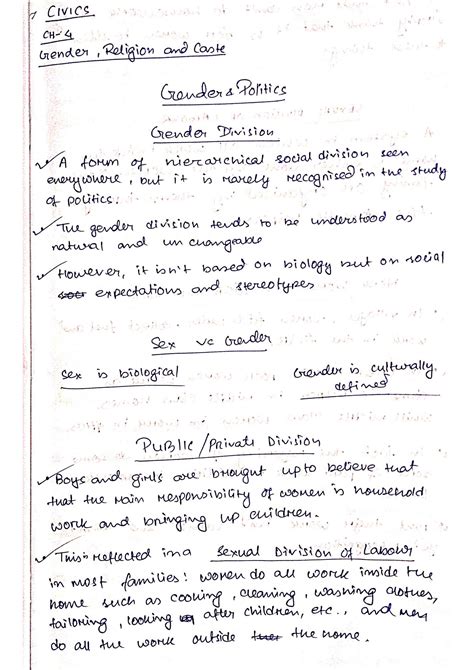 CIVICS
CH-4
Gender, Religion and Caste
Gender & Politics
Gender Division
✓ A form of hierarchical social division seen
everywhere, but it is rarely recognised in the study
of politics.
✓ The gender division tends to be understood as
natural and unchangeable
✓ However, it isn't based on biology but on social
expectations and stereotypes
Sex vc Gender
Sex is biological
Gender is culturally
defined
Public/Private Division
✓ Boys and girls are brought up to believe that
that the main responsibility of women is household
work and bringing up children.
✓ This is reflected in a Sexual Division of Labour
in most families: women do all work inside the
home such as cooking, cleaning, washing clothes,
tailoring, looking after children, etc., and men
do all the work outside the home.